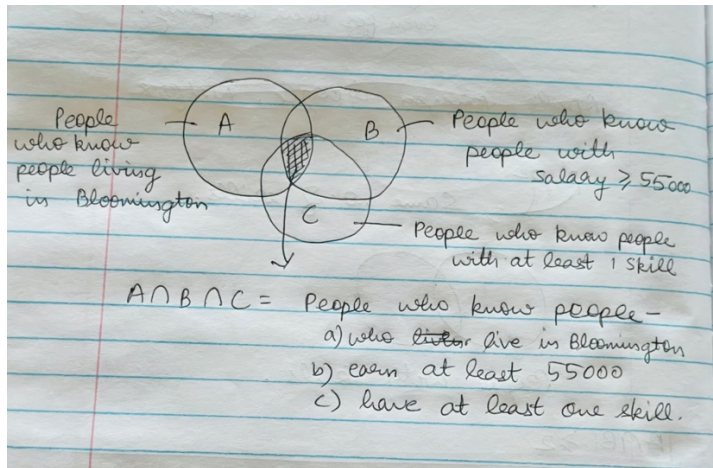 People
who know
people living
in Bloomington
A
B
C
People who know
people with
salary ⩾ 55000
People who know people
with at least 1 skill
A∩B∩C = People who know people –
a) who live in Bloomington
b) earn at least 55000
c) have at least one skill.